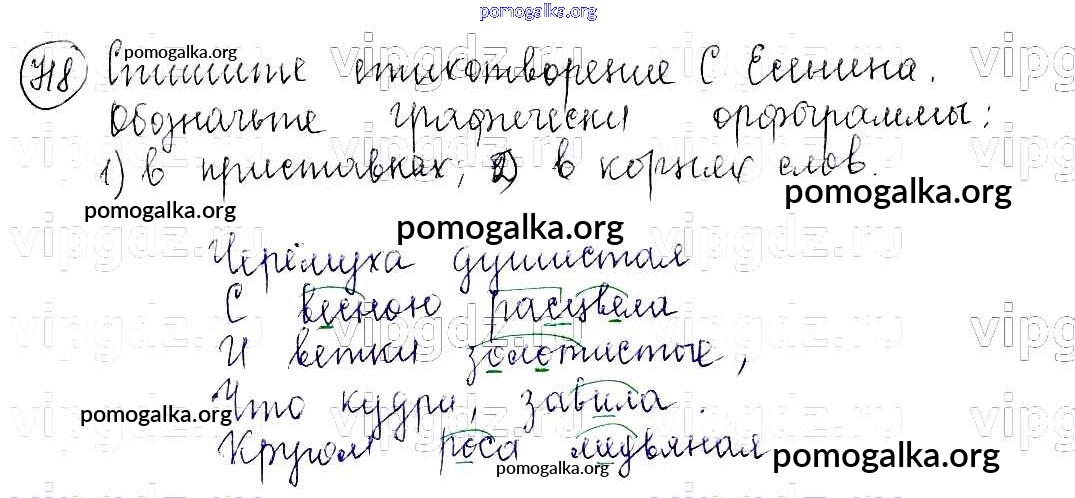 pomogalka.org
718 Спишите стихотворение С Есенина.
pomogalka.org
Обозначьте графически орфограммы:
1) в приставках; 2) в корнях слов.
pomogalka.org
pomogalka.org
pomogalka.org
vipgdz.ru
Черёмуха душистая
С весною расцвела
И ветки золотистые,
Что кудри, завила.
pomogalka.org
Кругом роса медвяная
pomogalka.org
pomogalka.org